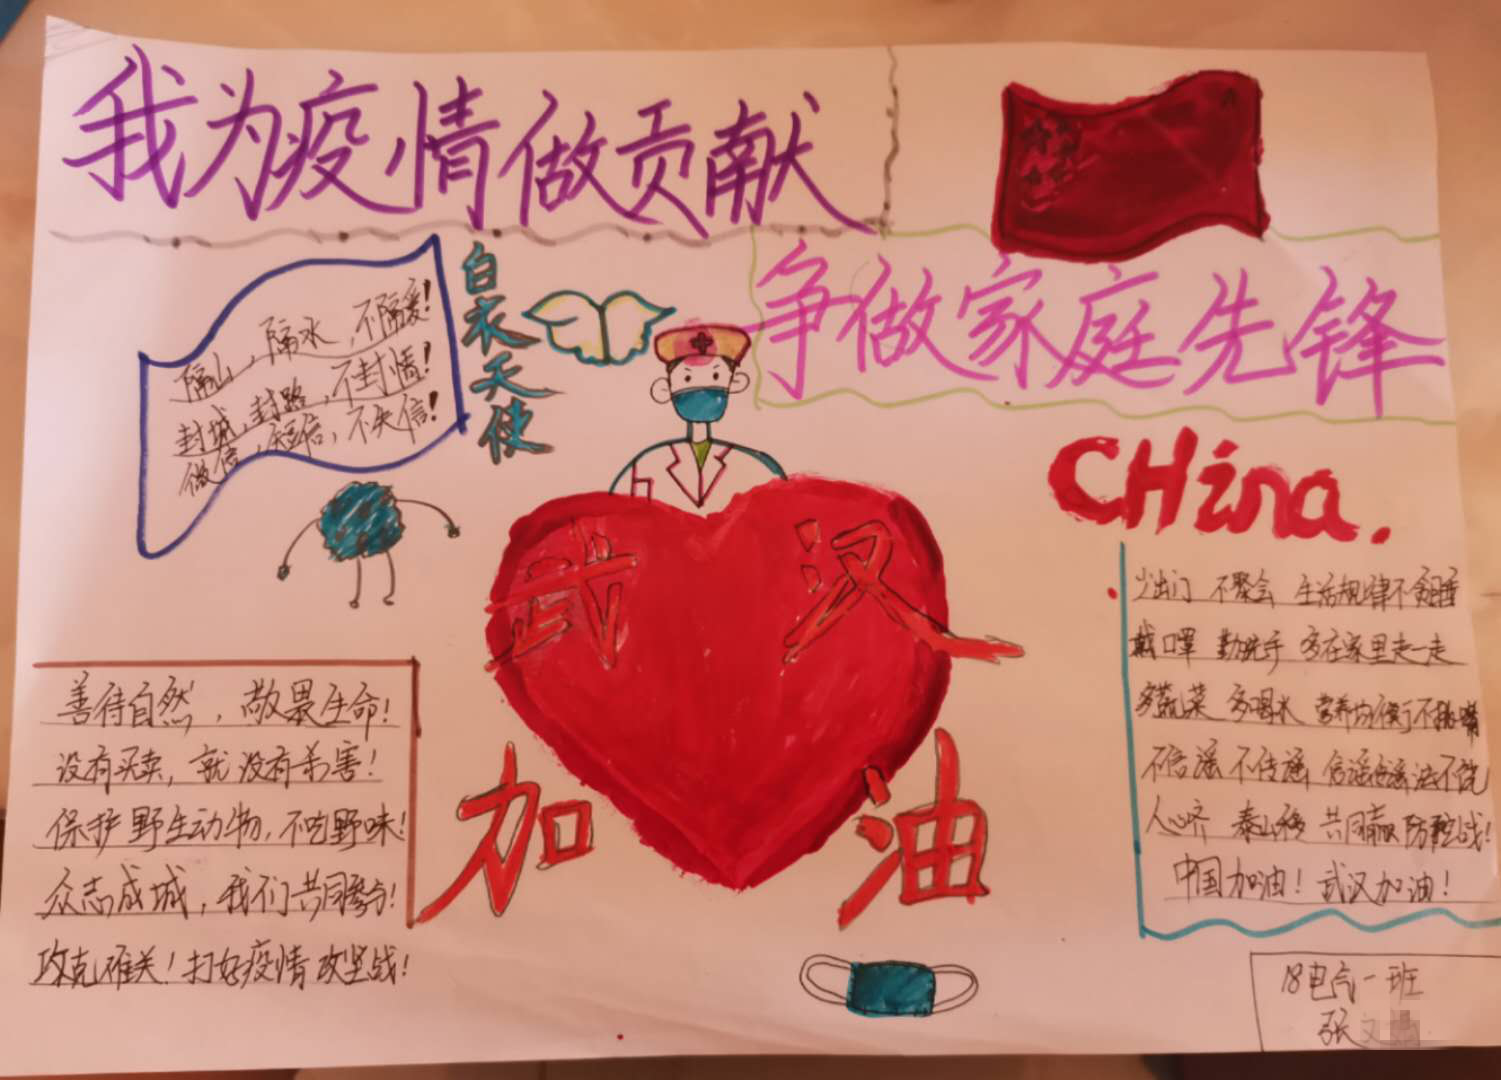 我为疫情做贡献
争做家庭先锋
隔山，隔水，不隔爱！
封城，封路，不封情！
微信，短信，不失信！
白衣天使
CHina.
武汉
加油
善待自然，敬畏生命！
没有买卖，就没有杀害！
保护野生动物，不吃野味！
众志成城，我们共同努力！
攻克难关！打好疫情攻坚战！
少出门 不聚会 生活规律不贪睡
戴口罩 勤洗手 多在家里走一走
多蔬菜 多喝水 营养均衡不挑嘴
不信谣 不传谣 信谣传谣法不饶
人心齐 泰山移 共同赢取防控战！
中国加油！武汉加油！
18电气一班
张